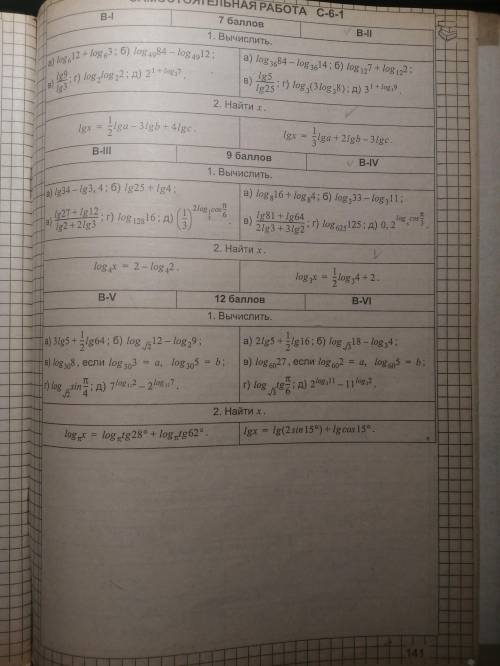 САМОСТОЯТЕЛЬНАЯ РАБОТА С-6-1
В-I 7 баллов В-II
1. Вычислить.
а) log₆12 + log₆3; б) log₄₉84 – log₄₉12;
в) lg9/lg3; г) log₄log₂2; д) 2^(1 + log₂7).
а) log₃₆84 – log₃₆14; б) log₁₂7 + log₁₂2;
в) lg5/lg25; г) log₃(3log₃8); д) 3^(1 + log₃9)
2. Найти x.
lgx = 1/2 lga – 3lgb + 4lgc.
lgx = 1/3 lga + 2lgb – 3lgc.
В-III 9 баллов В-IV
1. Вычислить.
а) lg34 – lg3,4; б) lg25 + lg4;
в) (lg27 + lg12)/(lg2 + 2lg3); г) log₁₂₈16; д) (1/3)^(2log₃cos π/6).
а) log₈16 + log₈4; б) log₃33 – log₃11;
в) (lg81 + lg64)/(2lg3 + 3lg2); г) log₆₂₅125; д) 0,2^(log cos π/3).
2. Найти x.
log₄x = 2 – log₄2.
log₃x = 1/2 log₃4 + 2.
В-V 12 баллов В-VI
1. Вычислить.
а) 3lg5 + 1/2 lg64; б) log_√2 12 – log₂9;
в) log₃₀8, если log₃₀3 = a, log₃₀5 = b;
г) log_√2 sin π/4; д) 7^(log₁₁2) – 2^(log₁₁7).
а) 2lg5 + 1/2 lg16; б) log_√3 18 – log₃4;
в) log₆₀27, если log₆₀2 = a, log₆₀5 = b;
г) log_√3 tg π/6; д) 2^(log₃11) – 11^(log₃2).
2. Найти x.
log_π x = log_π tg28° + log_π tg62°.
lgx = lg(2sin15°) + lgcos15°.
141